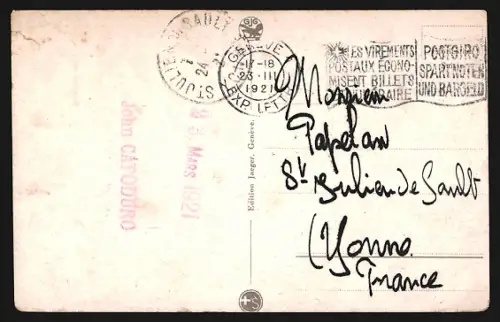 JULIEN DU SAULT
24
GENÈVE
17-18
23.III
1921
EXP. LETTR
LES VIREMENTS
POSTAUX ÉCONO-
MISENT BILLETS
POSTGIRO
SPART NOTEN
UND BARGELD
23 MARS 1921
John CATODURO
Edition Jaeger, Genève.
Monsieur
Papelan
St Julien de Sault
(Yonne
France